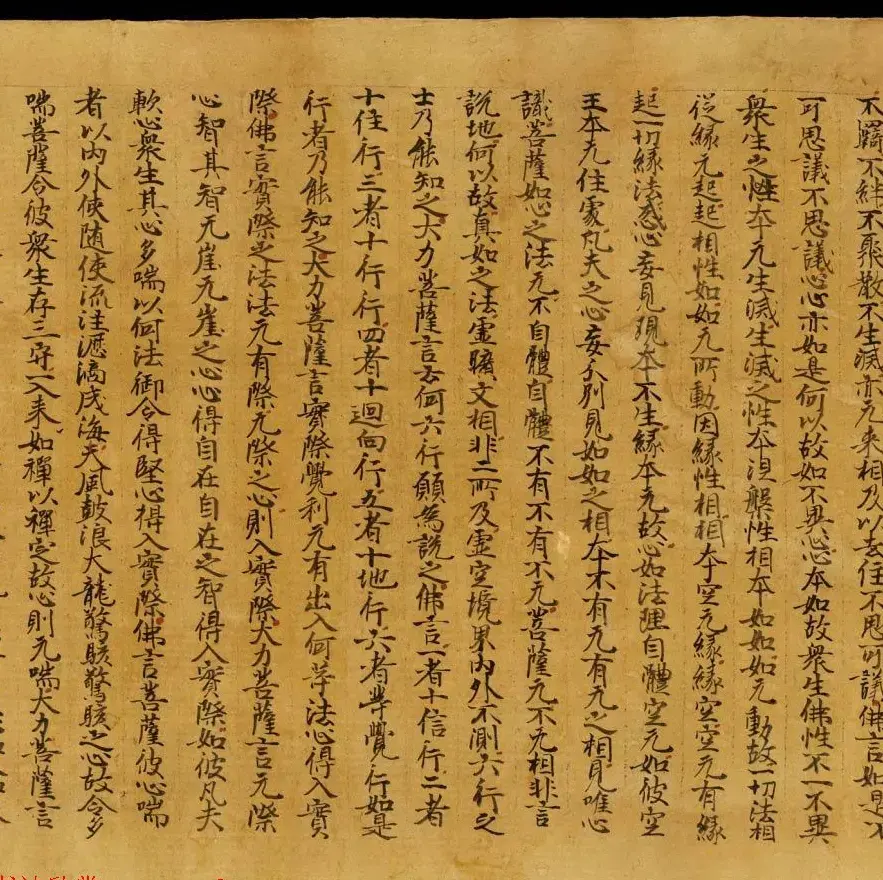 不羈不絆不聚散不生滅亦无来相及以去住不思可議佛言如是不
可思議不思議心心亦如是何以故如不異心心本如故衆生佛性不一不異
衆生之性本无生滅生滅之性本涅槃性相本如如如无動故一切法相
従緣无起起相性如如无所動因緣性相相本空无緣緣空空无有緣
起一切緣法惑心妄見現本不生緣本无故心如法理自體空无如彼空
王本无住處凡夫之心妄分別見如如之相本不有无有无之相見唯心
識菩薩如心之法无不自體自體不有不有不无菩薩无不无相非言
説地何以故真如之法虚曠文相非二所及虚空境界内外不測六行之
士乃能知之大力菩薩言云何六行願為説之佛言一者十信行二者
十住行三者十行行四者十迴向行五者十地行六者等覺行如是
行者乃能知之大力菩薩言實際覺利无有出入何等法心得入實
際佛言實際之法法无有際无際之心則入實際大力菩薩言无際
心智其智无崖无崖之心心得自在自在之智得入實際如彼凡夫
軟心衆生其心多喘以何法御令得堅心得入實際佛言菩薩彼心喘
者以内外使随使流注滴瀝成海大風鼓浪大龍驚駭驚駭之心故令多
喘菩薩令彼衆生存三守一入来如禪以禪定故心則无喘大力菩薩言